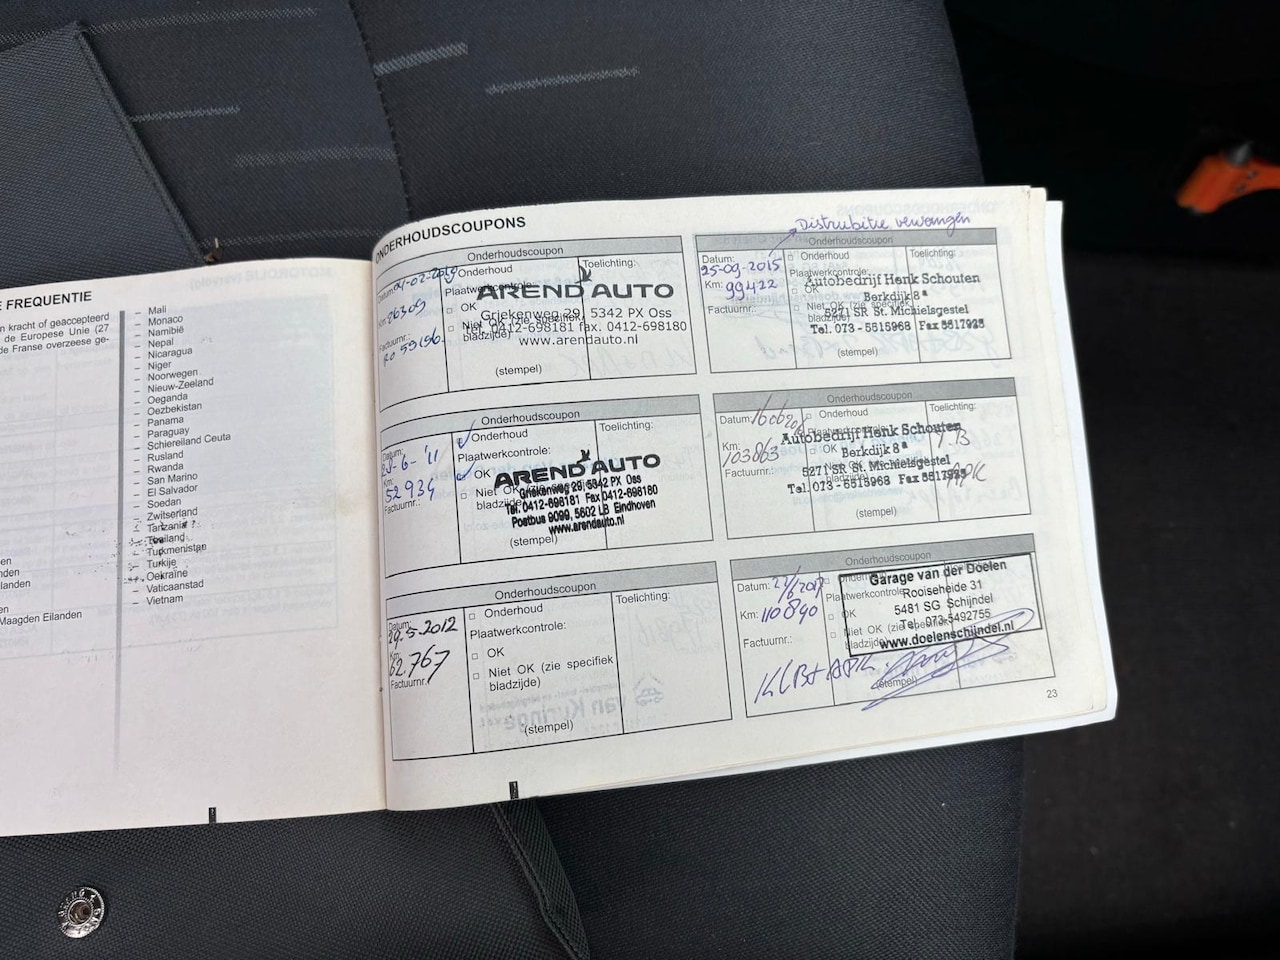 E FREQUENTIE
n kracht of geaccepteerd
de Europese Unie (27
de Franse overzeese ge-
en
nden
landen
en
Maagden Eilanden
– Mali
– Monaco
– Namibië
– Nepal
– Nicaragua
– Niger
– Noorwegen
– Nieuw-Zeeland
– Oeganda
– Oezbekistan
– Panama
– Paraguay
– Schiereiland Ceuta
– Rusland
– Rwanda
– San Marino
– El Salvador
– Soedan
– Zwitserland
– Tanzania
– Thailand
– Turkmenistan
– Turkije
– Oekraïne
– Vaticaanstad
– Vietnam
ONDERHOUDSCOUPONS
Onderhoudscoupon
Datum:
Km:
26309
Factuurnr.:
Ro 59196.
Onderhoud
Plaatwerkcontrole:
OK
Niet OK (zie specifiek
bladzijde)
(stempel)
Toelichting:
AREND AUTO
Griekenweg 29, 5342 PX Oss
Tel. 0412-698181 fax. 0412-698180
www.arendauto.nl
Onderhoudscoupon
Datum:
-6-'11
Km:
52934
Factuurnr.:
Onderhoud
Plaatwerkcontrole:
OK
Niet OK (zie specifiek
bladzijde)
(stempel)
Toelichting:
AREND AUTO
Griekenweg 29, 5342 PX Oss
Tel. 0412-698181 Fax 0412-698180
Postbus 9099, 5602 LB Eindhoven
www.arendauto.nl
Onderhoudscoupon
Datum:
29-5-2012
Km:
62767
Factuurnr.:
Onderhoud
Plaatwerkcontrole:
OK
Niet OK (zie specifiek
bladzijde)
(stempel)
Toelichting:
Distributie vervangen
Onderhoudscoupon
Datum:
25-09-2015
Km:
99422
Factuurnr.:
Onderhoud
Plaatwerkcontrole:
OK
Niet OK (zie specifiek
bladzijde)
(stempel)
Toelichting:
Autobedrijf Henk Schouten
Berkdijk 8a
5271 SR St. Michielsgestel
Tel. 073 - 5515968 Fax 5517923
Onderhoudscoupon
Datum:
Km:
103863
Factuurnr.:
Onderhoud
Plaatwerkcontrole:
(stempel)
Toelichting:
APK
Autobedrijf Henk Schouten
Berkdijk 8a
5271 SR St. Michielsgestel
Tel. 073 - 5515968 Fax 5517923
Onderhoudscoupon
Datum:
Km: 110840
Factuurnr.:
Plaatwerkcontrole:
OK
Niet OK (zie specifiek
bladzijde)
(stempel)
Garage van der Doelen
Rooiseheide 31
5481 SG Schijndel
Tel. 073-5492755
www.doelenschijndel.nl
23